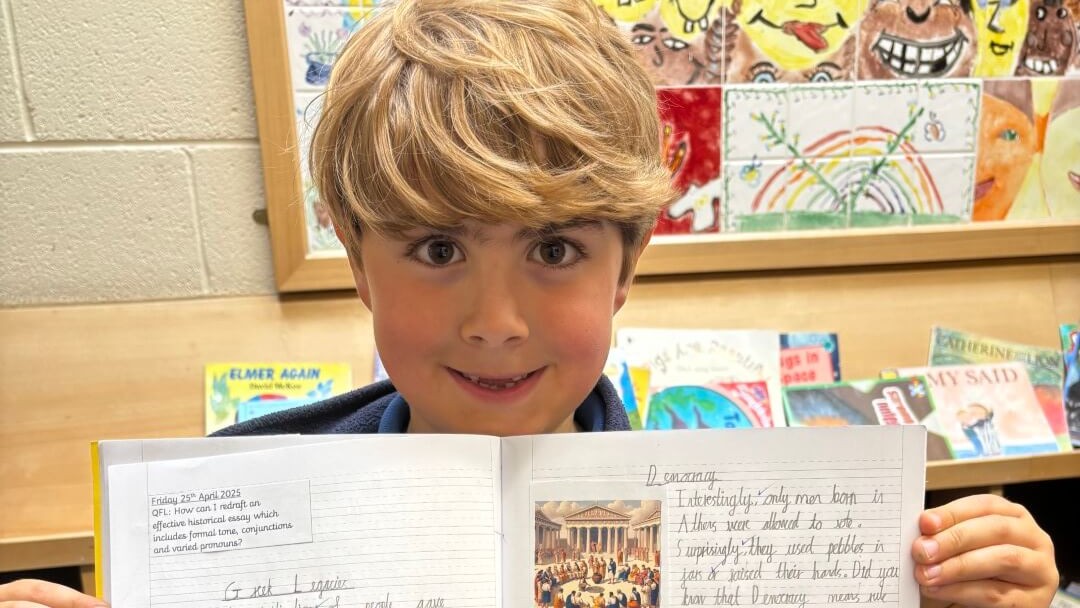 ELMER AGAIN
David McKee
CATHERINE
LION
MY SAID
Friday 25th April 2025
QFL: How can I redraft an
effective historical essay which
includes formal tone, conjunctions
and varied pronouns?
Greek Legacies
of people gave
Democracy
Interestingly, only men born in
Athens were allowed to vote.
Surprisingly, they used pebbles in
jars or raised their hands. Did you
know that Democracy means rule